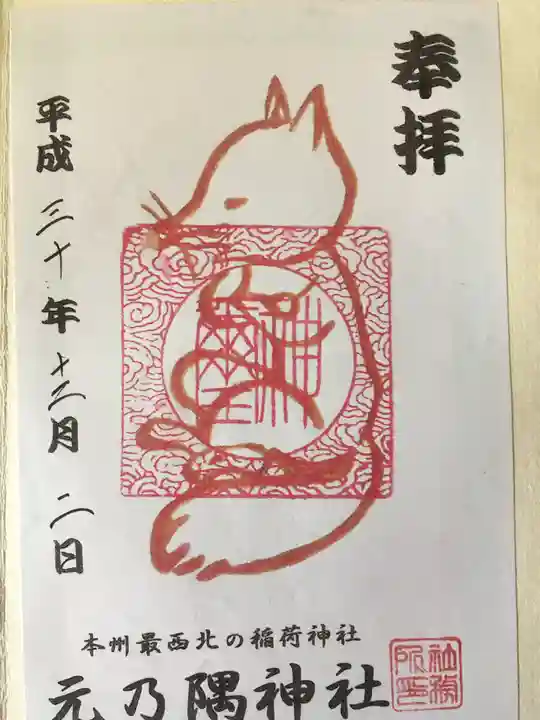 奉拝
平成三十年十二月二日
本州最西北の稲荷神社
元乃隅神社
社務所印